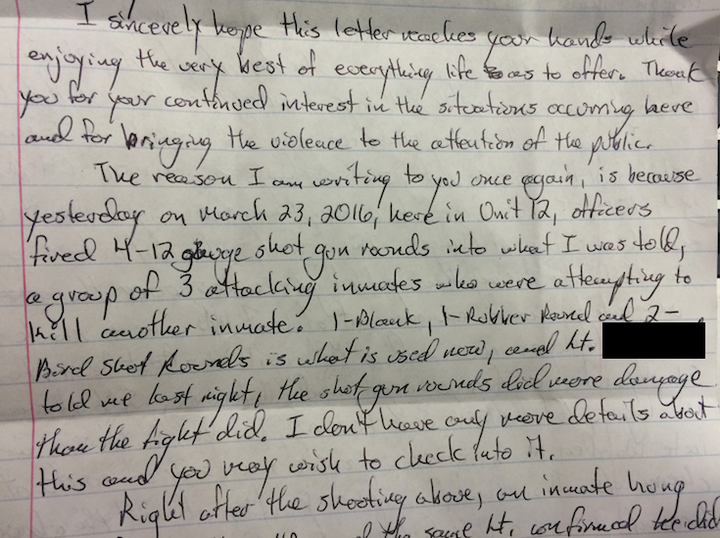 I sincerely hope this letter reaches your hands while
enjoying the very best of everything life has to offer. Thank
you for your continued interest in the situations occurring here
and for bringing the violence to the attention of the public.
The reason I am writing to you once again, is because
yesterday on March 23, 2016, here in Unit 12, officers
fired 4-12 gauge shot gun rounds into what I was told,
a group of 3 attacking inmates who were attempting to
kill another inmate. 1-Blank, 1-Rubber Round and 2-
Bird Shot Rounds is what is used now, and Lt.
told me last night, the shot gun rounds did more damage
than the fight did. I don't have any more details about
this and you may wish to check into it.
Right after the shooting above, an inmate hung
the same Lt. confirmed he did